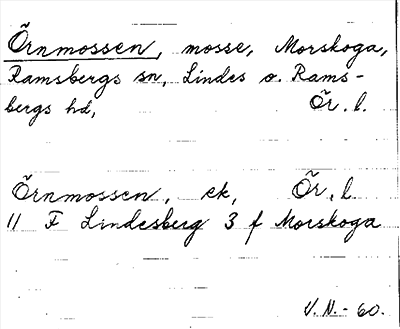 Örnmossen, mosse, Morskoga,
Ramsbergs sn, Lindes o. Rams-
bergs hd, Ör. l.
Örnmossen, ek, Ör. l.
11 F Lindesberg 3 f Morskoga
V. N. - 60.